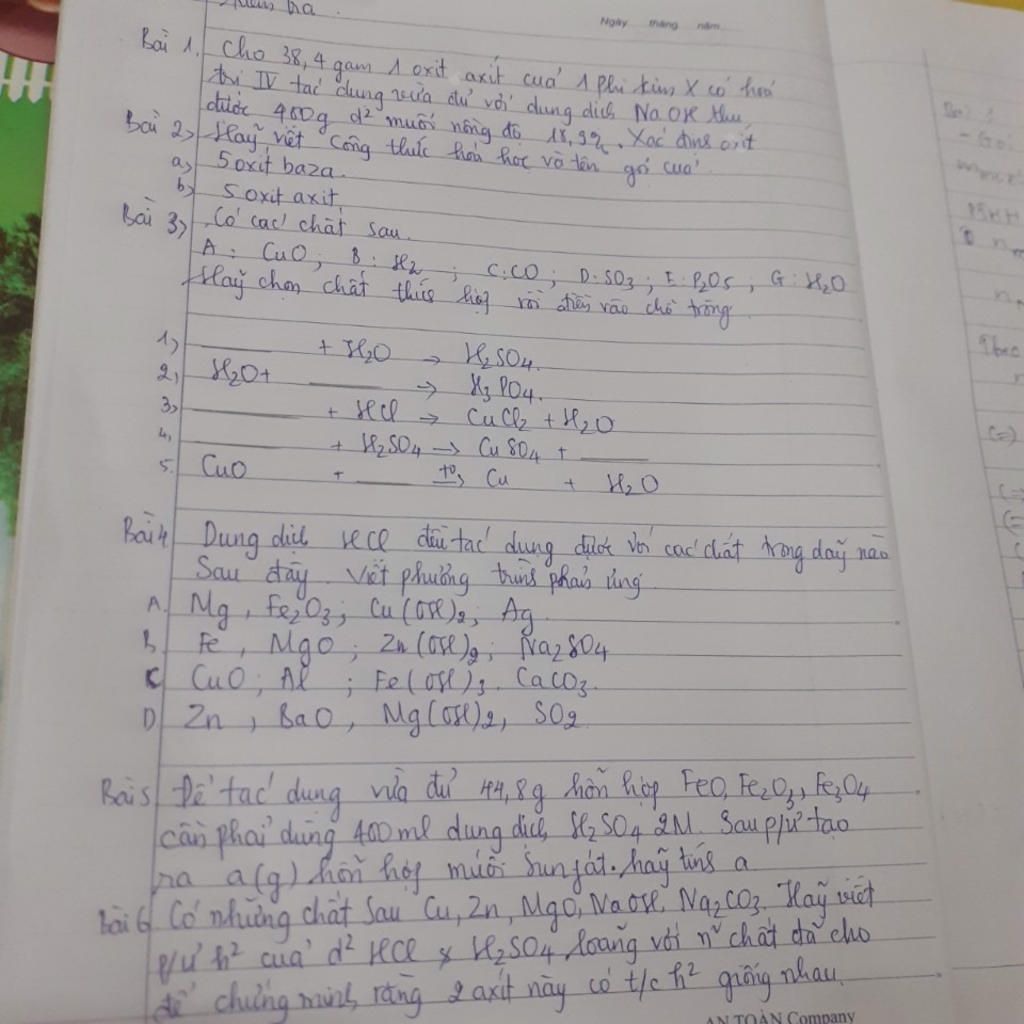 Kiểm tra.
Ngày tháng năm
Bài 1. Cho 38,4 gam 1 oxit axit của 1 phi kim X có hoá
trị IV tác dụng vừa đủ với dung dịch NaOH thu
được 400g d² muối nồng độ 18,9%. Xác định oxit
Bài 2, Hãy viết công thức hoá học và tên gọi của
a, 5 oxit bazơ.
b, 5 oxit axit
Bài 3, Có các chất sau.
A: CuO; B: H₂; C: CO; D: SO₃; E: P₂O₅; G: H₂O
Hãy chọn chất thích hợp rồi điền vào chỗ trống
1, ____ + H₂O → H₂SO₄.
2, H₂O + ____ → H₃PO₄.
3, ____ + HCl → CuCl₂ + H₂O
4, ____ + H₂SO₄ → CuSO₄ + ____
5. CuO + ____ t⁰→ Cu + H₂O
Bài 4 Dung dịch HCl đều tác dụng được với các chất trong dãy nào
Sau đây. Viết phương trình phản ứng
A. Mg, Fe₂O₃; Cu(OH)₂; Ag.
B. Fe, MgO; Zn(OH)₂; Na₂SO₄
C CuO; Al; Fe(OH)₃. CaCO₃.
D Zn, BaO, Mg(OH)₂, SO₂.
Bài 5 Để tác dụng vừa đủ 44,8g hỗn hợp FeO, Fe₂O₃, Fe₃O₄
cần phải dùng 400ml dung dịch H₂SO₄ 2M. Sau p/ư tạo
ra a(g) hỗn hợp muối sunfát. hãy tính a
Bài 6 Có những chất sau Cu, Zn, MgO, NaOH, Na₂CO₃. Hãy viết
p/ư h² của d² HCl & H₂SO₄ loãng với n~ chất đã cho
để chứng minh rằng 2 axit này có t/c h² giống nhau.
AN TOÀN Company